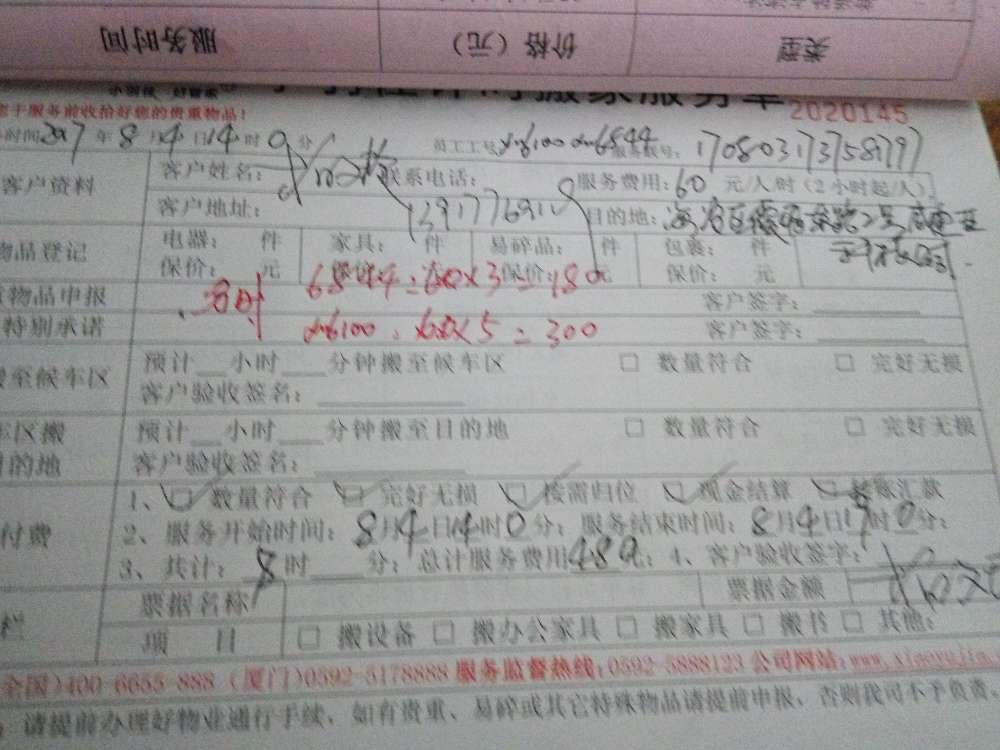 服务时间
价格（元）
类型
搬家服务单
2020145
您于服务前收拾好您的贵重物品！
时间2017年8月4日14时0分
员工工号xm6100 xm6844
服务账号：1708031737587797
客户资料
客户姓名：
联系电话：
服务费用：60元/人/时（2小时起/人）
客户地址：
目的地：
物品登记
电器：件
家具：件
易碎品：件
包裹：件
保价：元
保价：元
保价：元
保价：元
物品申报
8时
6844=60×3=180
客户签字：
特别承诺
xm6100：60×5=300
客户签字：
至候车区
预计__小时__分钟搬至候车区
□ 数量符合
□ 完好无损
客户验收签名：
区搬
预计__小时__分钟搬至目的地
□ 数量符合
□ 完好无损
目的地
客户验收签名：
付费
1、□数量符合 □完好无损 □按需归位 □现金结算 □转账汇款
2、服务开始时间：8月4日14时0分；服务结束时间：8月4日19时0分；
3、共计：8时__分；总计服务费用480元；4、客户验收签字：
栏
票据名称
票据金额
项目
□ 搬设备 □ 搬办公家具 □ 搬家具 □ 搬书 □ 其他：
全国)400-6655-888 (厦门)0592-5178888 服务监督热线：0592-5888123 公司网站：www.xiaoyujia.
请提前办理好物业通行手续，如有贵重、易碎或其它特殊物品请提前申报，否则我司不予负责。